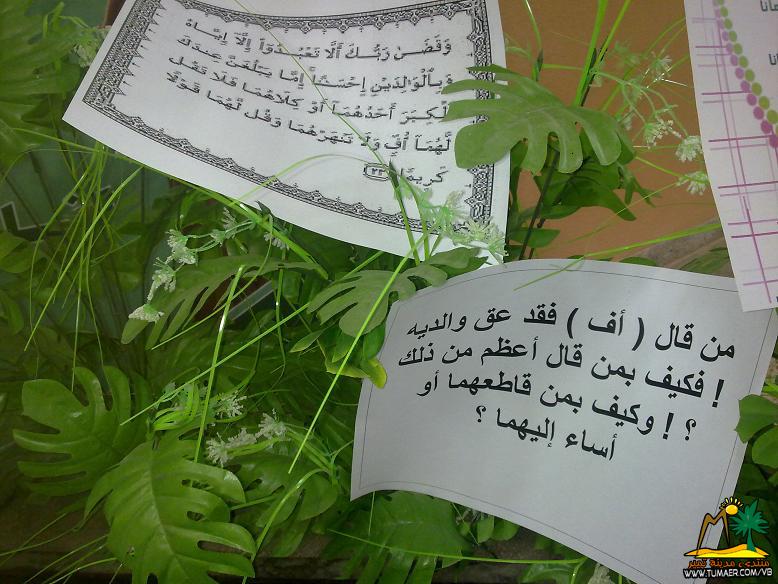 وَقَضَىٰ رَبُّكَ أَلَّا تَعْبُدُوٓا۟ إِلَّآ إِيَّاهُ
وَبِٱلْوَٰلِدَيْنِ إِحْسَٰنًا إِمَّا يَبْلُغَنَّ عِندَكَ
ٱلْكِبَرَ أَحَدُهُمَآ أَوْ كِلَاهُمَا فَلَا تَقُل
لَّهُمَآ أُفٍّ وَلَا تَنْهَرْهُمَا وَقُل لَّهُمَا قَوْلًا
كَرِيمًا ٢٣
من قال ( أف ) فقد عق والديه
! فكيف بمن قال أعظم من ذلك
؟ ! وكيف بمن قاطعهما أو
أساء إليهما ؟
منتدى مدينة تمير
WWW.TUMAER.COM/VB